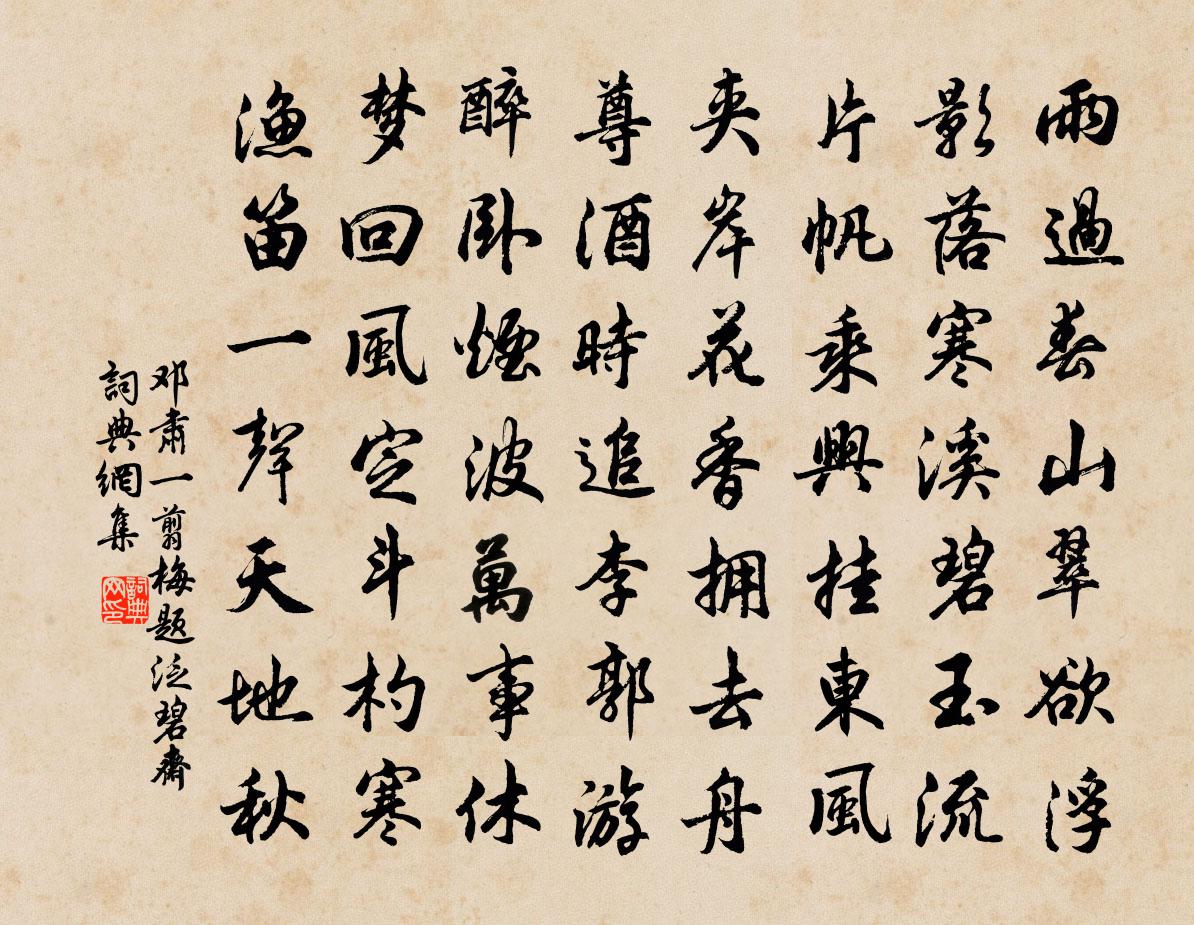 雨過春山翠欲浮
影落寒溪碧玉流
片帆乘興挂東風
夾岸花香拥去舟
尊酒時追李郭游
醉卧煙波萬事休
梦回風定斗杓寒
渔笛一聲天地秋
邓肅一剪梅题泛碧齋
詞典網集
詞典网印